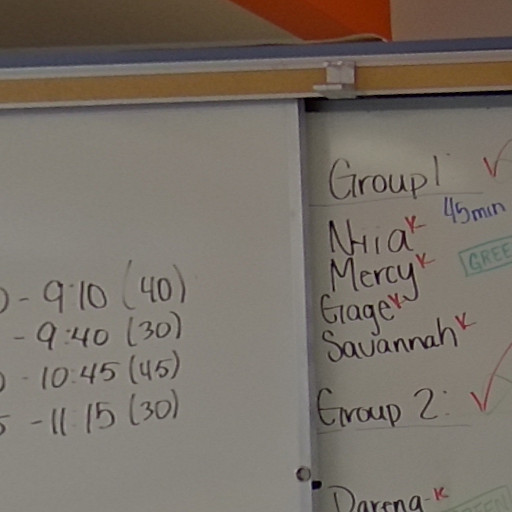 - 9:10 (40)
- 9:40 (30)
- 10:45 (45)
- 11:15 (30)
Group 1
45min
Nria K
GREE
Mercy K
Gage K
Savannah K
Group 2:
Darena - K